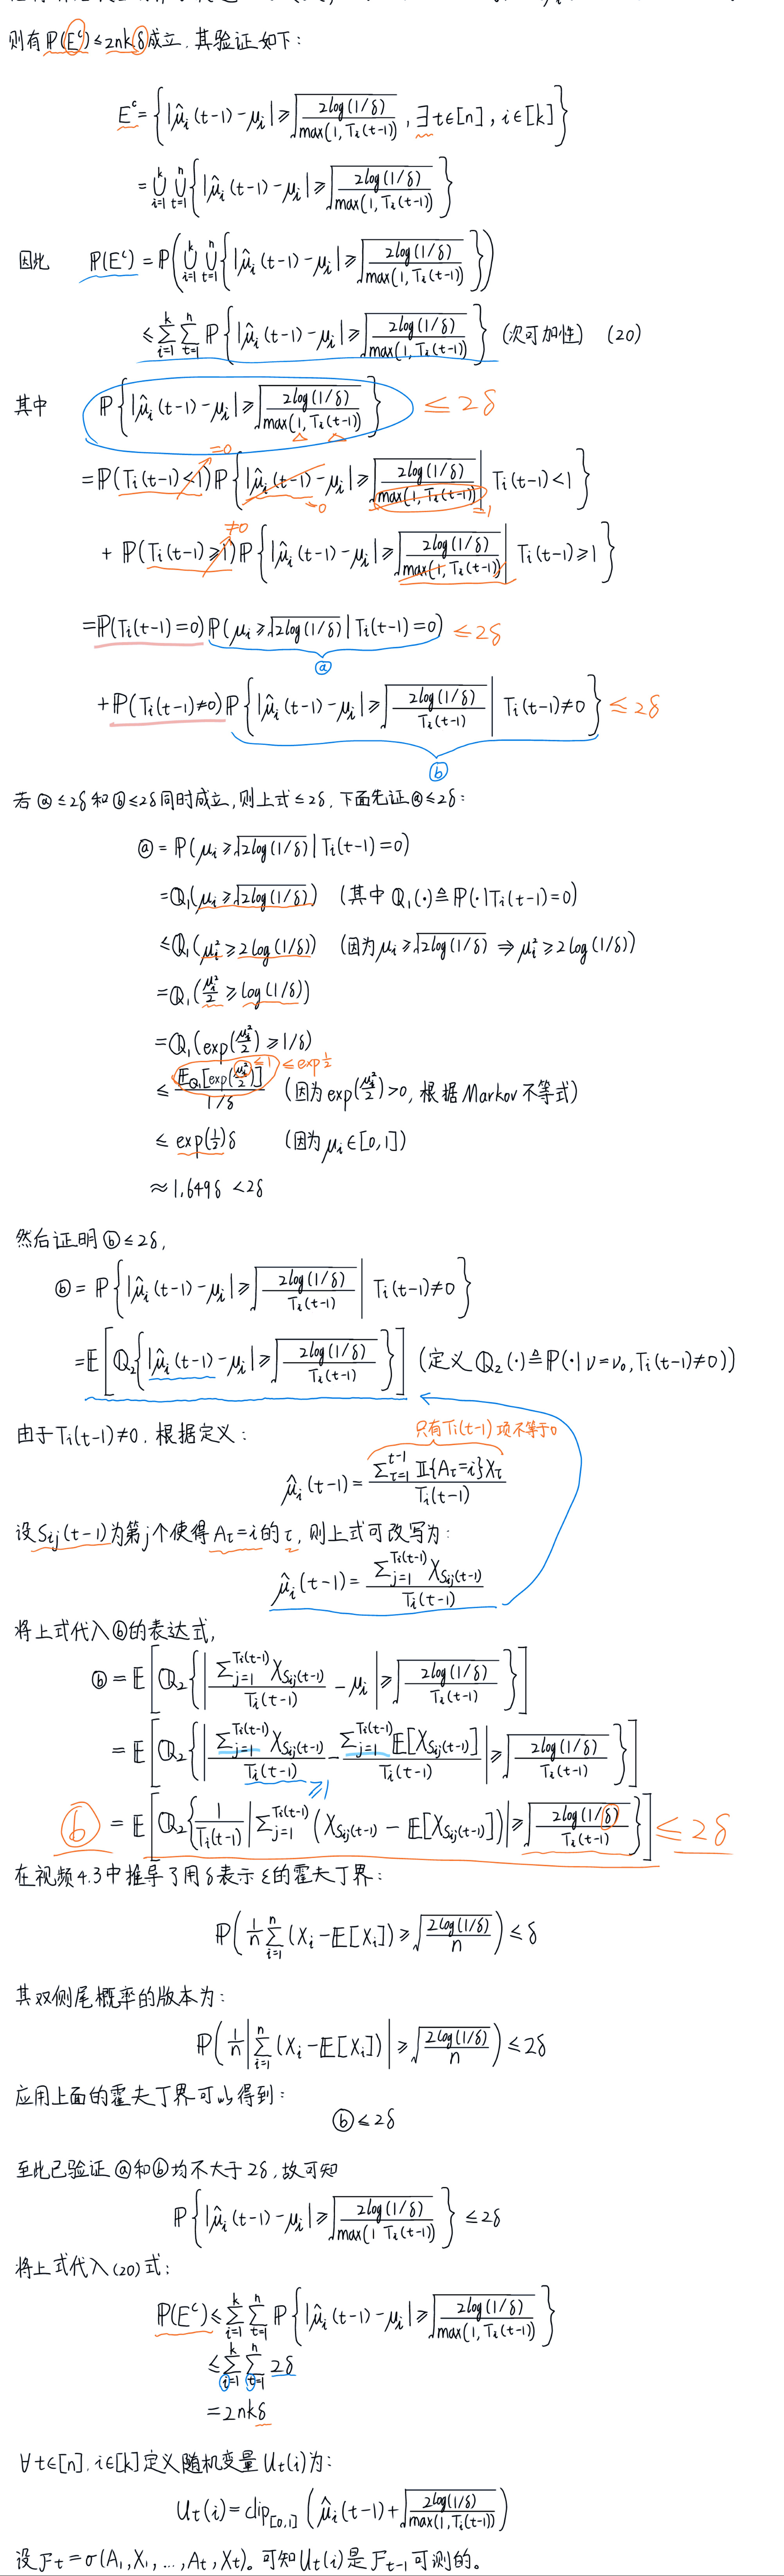 则有 ℙ(Eᶜ) ≤ 2nkδ 成立. 其验证如下:
Eᶜ = { |μ̂ᵢ(t-1) - μᵢ| ≥ √(2log(1/δ) / max(1, Tᵢ(t-1))) , ∃ t∈[n], i∈[k] }
= ⋃_{i=1}^{k} ⋃_{t=1}^{n} { |μ̂ᵢ(t-1) - μᵢ| ≥ √(2log(1/δ) / max(1, Tᵢ(t-1))) }
因此 ℙ(Eᶜ) = ℙ( ⋃_{i=1}^{k} ⋃_{t=1}^{n} { |μ̂ᵢ(t-1) - μᵢ| ≥ √(2log(1/δ) / max(1, Tᵢ(t-1))) } )
≤ ∑_{i=1}^{k} ∑_{t=1}^{n} ℙ{ |μ̂ᵢ(t-1) - μᵢ| ≥ √(2log(1/δ) / max(1, Tᵢ(t-1))) } (次可加性) (20)
其中 ℙ{ |μ̂ᵢ(t-1) - μᵢ| ≥ √(2log(1/δ) / max(1, Tᵢ(t-1))) } ≤ 2δ
=0
= ℙ(Tᵢ(t-1) < 1) ℙ{ |μ̂ᵢ(t-1) - μᵢ| ≥ √(2log(1/δ) / max(1, Tᵢ(t-1))) | Tᵢ(t-1) < 1 }
=0 =1
≠0
+ ℙ(Tᵢ(t-1) ≥ 1) ℙ{ |μ̂ᵢ(t-1) - μᵢ| ≥ √(2log(1/δ) / max(1, Tᵢ(t-1))) | Tᵢ(t-1) ≥ 1 }
= ℙ(Tᵢ(t-1) = 0) ℙ(μᵢ ≥ √(2log(1/δ)) | Tᵢ(t-1) = 0) ≤ 2δ
ⓐ
+ ℙ(Tᵢ(t-1) ≠ 0) ℙ{ |μ̂ᵢ(t-1) - μᵢ| ≥ √(2log(1/δ) / Tᵢ(t-1)) | Tᵢ(t-1) ≠ 0 } ≤ 2δ
ⓑ
若 ⓐ ≤ 2δ 和 ⓑ ≤ 2δ 同时成立, 则上式 ≤ 2δ. 下面先证 ⓐ ≤ 2δ:
ⓐ = ℙ(μᵢ ≥ √(2log(1/δ)) | Tᵢ(t-1) = 0)
= ℚ₁(μᵢ ≥ √(2log(1/δ))) (其中 ℚ₁(·) ≜ ℙ(·|Tᵢ(t-1) = 0)
≤ ℚ₁(μᵢ² ≥ 2log(1/δ)) (因为 μᵢ ≥ √(2log(1/δ)) ⇒ μᵢ² ≥ 2log(1/δ))
= ℚ₁(μᵢ²/2 ≥ log(1/δ))
= ℚ₁(exp(μᵢ²/2) ≥ 1/δ)
≤1 ≤ exp ½
≤ 𝔼_{ℚ₁}[exp(μᵢ²/2)] / (1/δ) (因为 exp(μᵢ²/2) > 0, 根据 Markov 不等式)
≤ exp(½)δ (因为 μᵢ∈[0,1])
≈ 1.649δ < 2δ
然后证明 ⓑ ≤ 2δ,
ⓑ = ℙ{ |μ̂ᵢ(t-1) - μᵢ| ≥ √(2log(1/δ) / Tᵢ(t-1)) | Tᵢ(t-1) ≠ 0 }
= 𝔼[ ℚ₂{ |μ̂ᵢ(t-1) - μᵢ| ≥ √(2log(1/δ) / Tᵢ(t-1)) } ] (定义 ℚ₂(·) ≜ ℙ(·|ν = ν₀, Tᵢ(t-1) ≠ 0))
由于 Tᵢ(t-1) ≠ 0, 根据定义:
只有 Tᵢ(t-1) 项不等于0
μ̂ᵢ(t-1) = ∑_{τ=1}^{t-1} 𝕀{A_τ = i}X_τ / Tᵢ(t-1)
设 Sᵢⱼ(t-1) 为第 j 个使得 A_τ = i 的 τ, 则上式可改写为:
μ̂ᵢ(t-1) = ∑_{j=1}^{Tᵢ(t-1)} X_{Sᵢⱼ(t-1)} / Tᵢ(t-1)
将上式代入 ⓑ 的表达式,
ⓑ = 𝔼[ ℚ₂{ | ∑_{j=1}^{Tᵢ(t-1)} X_{Sᵢⱼ(t-1)} / Tᵢ(t-1) - μᵢ | ≥ √(2log(1/δ) / Tᵢ(t-1)) } ]
= 𝔼[ ℚ₂{ | ∑_{j=1}^{Tᵢ(t-1)} X_{Sᵢⱼ(t-1)} / Tᵢ(t-1) - ∑_{j=1}^{Tᵢ(t-1)} 𝔼[X_{Sᵢⱼ(t-1)}] / Tᵢ(t-1) | ≥ √(2log(1/δ) / Tᵢ(t-1)) } ]
≥1
ⓑ = 𝔼[ ℚ₂{ 1/Tᵢ(t-1) | ∑_{j=1}^{Tᵢ(t-1)} (X_{Sᵢⱼ(t-1)} - 𝔼[X_{Sᵢⱼ(t-1)}]) | ≥ √(2log(1/δ) / Tᵢ(t-1)) } ] ≤ 2δ
在视频4.3中推导了用 δ 表示 ε 的霍夫丁界:
ℙ( 1/n ∑_{i=1}^{n} (Xᵢ - 𝔼[Xᵢ]) ≥ √(2log(1/δ) / n) ) ≤ δ
其双侧尾概率的版本为:
ℙ( 1/n | ∑_{i=1}^{n} (Xᵢ - 𝔼[Xᵢ]) | ≥ √(2log(1/δ) / n) ) ≤ 2δ
应用上面的霍夫丁界可以得到:
ⓑ ≤ 2δ
至此已验证 ⓐ 和 ⓑ 均不大于 2δ, 故可知
ℙ{ |μ̂ᵢ(t-1) - μᵢ| ≥ √(2log(1/δ) / max(1 Tᵢ(t-1))) } ≤ 2δ
将上式代入 (20) 式:
ℙ(Eᶜ) ≤ ∑_{i=1}^{k} ∑_{t=1}^{n} ℙ{ |μ̂ᵢ(t-1) - μᵢ| ≥ √(2log(1/δ) / max(1, Tᵢ(t-1))) }
≤ ∑_{i=1}^{k} ∑_{t=1}^{n} 2δ
= 2nkδ
∀ t∈[n], i∈[k] 定义随机变量 Uₜ(i) 为:
Uₜ(i) = clip_{[0,1]} ( μ̂ᵢ(t-1) + √(2log(1/δ) / max(1, Tᵢ(t-1))) )
设 ℱₜ = σ(A₁, X₁, ..., Aₜ, Xₜ)。可知 Uₜ(i) 是 ℱₜ₋₁ 可测的。